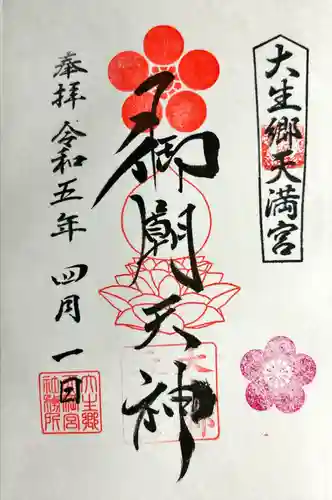 大生郷天満宮
御廟天神
奉拝 令和五年 四月 一日
大生郷
天満宮
社務所